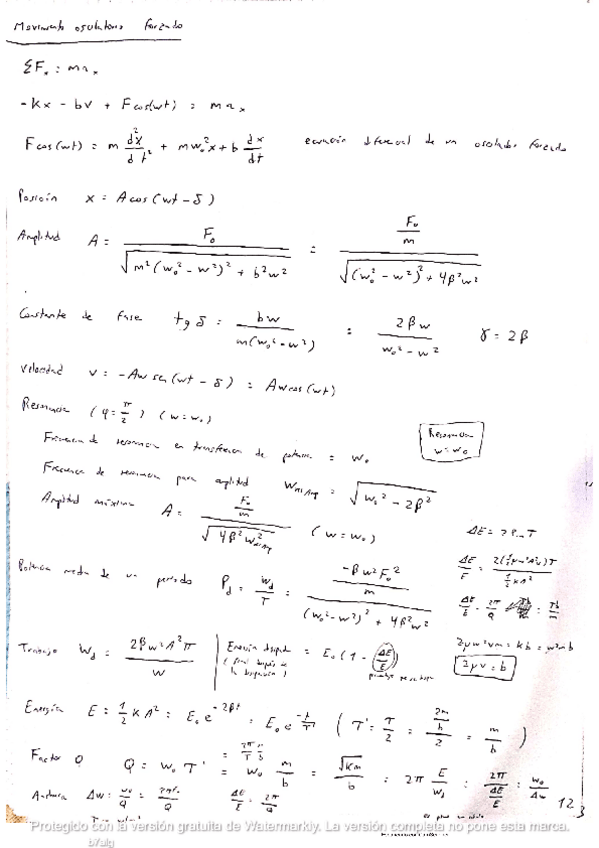 Movimiento oscilatorio forzado
ΣFx = max
-Kx - bv + F cos(wt) = max
F cos(wt) = m d²x/dt² + mw₀²x + b dx/dt ecuación diferencial de un oscilador forzado
Posición x = A cos(wt - δ)
Amplitud A = F₀ / √(m²(w₀² - w²)² + b²w²) = (F₀/m) / √((w₀² - w²)² + 4β²w²)
Constante de fase tg δ = bw / m(w₀² - w²) = 2βw / (w₀² - w²) γ = 2β
Velocidad v = -Aw sen(wt - δ) = Aw cos(wt)
Resonancia (φ = π/2) (w = w₀)
Frecuencia de resonancia en transferencia de potencia = w₀
Resonancia w = w₀
Frecuencia de resonancia para amplitud = √(w₀² - 2β²)
Amplitud máxima A = (F₀/m) / √(4β²w²) (w = w₀)
Potencia media de un periodo Pd = Wd/T = (-βw²F₀²/m) / ((w₀² - w²)² + 4β²w²)
Trabajo Wd = 2βw²A²π / w
Energía disipada = E₀(1 - ΔE/E)
2μv = b
Energía E = 1/2 KA² = E₀e^(-2βt) = E₀e^(-t/T') (T' = T/2 = (2m/b)/2 = m/b)
Factor Q Q = w₀T' = w₀ m/b = √(Km)/b = 2π E/Wd = 2π/(ΔE/E) = w₀/Δw
Anchura Δw = w₀/Q ΔE/E = 2π/Q
12
Protegido con la versión gratuita de Watermarkly. La versión completa no pone esta marca.